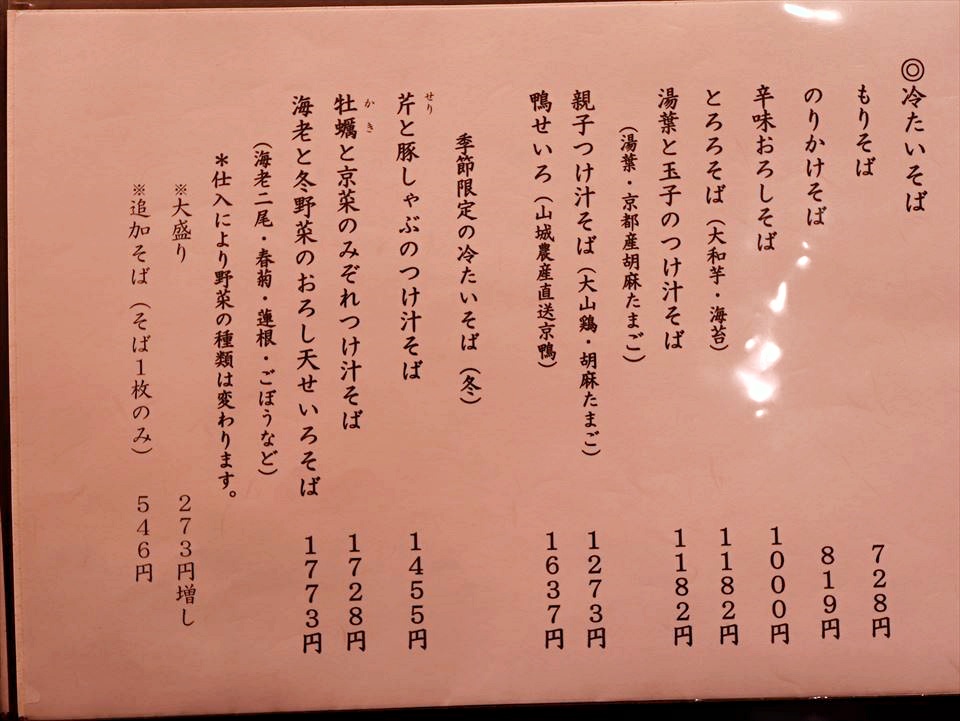 ◎冷たいそば
もりそば 728円
のりかけそば 819円
辛味おろしそば 1000円
とろろそば（大和芋・海苔） 1182円
湯葉と玉子のつけ汁そば 1182円
（湯葉・京都産胡麻たまご）
親子つけ汁そば（大山鶏・胡麻たまご） 1273円
鴨せいろ（山城農産直送京鴨） 1637円
季節限定の冷たいそば（冬）
芹と豚しゃぶのつけ汁そば 1455円
せり
牡蠣と京菜のみぞれつけ汁そば 1728円
かき
海老と冬野菜のおろし天せいろそば 1773円
（海老二尾・春菊・蓮根・ごぼうなど）
＊仕入により野菜の種類は変わります。
※大盛り 273円増し
※追加そば（そば1枚のみ） 546円